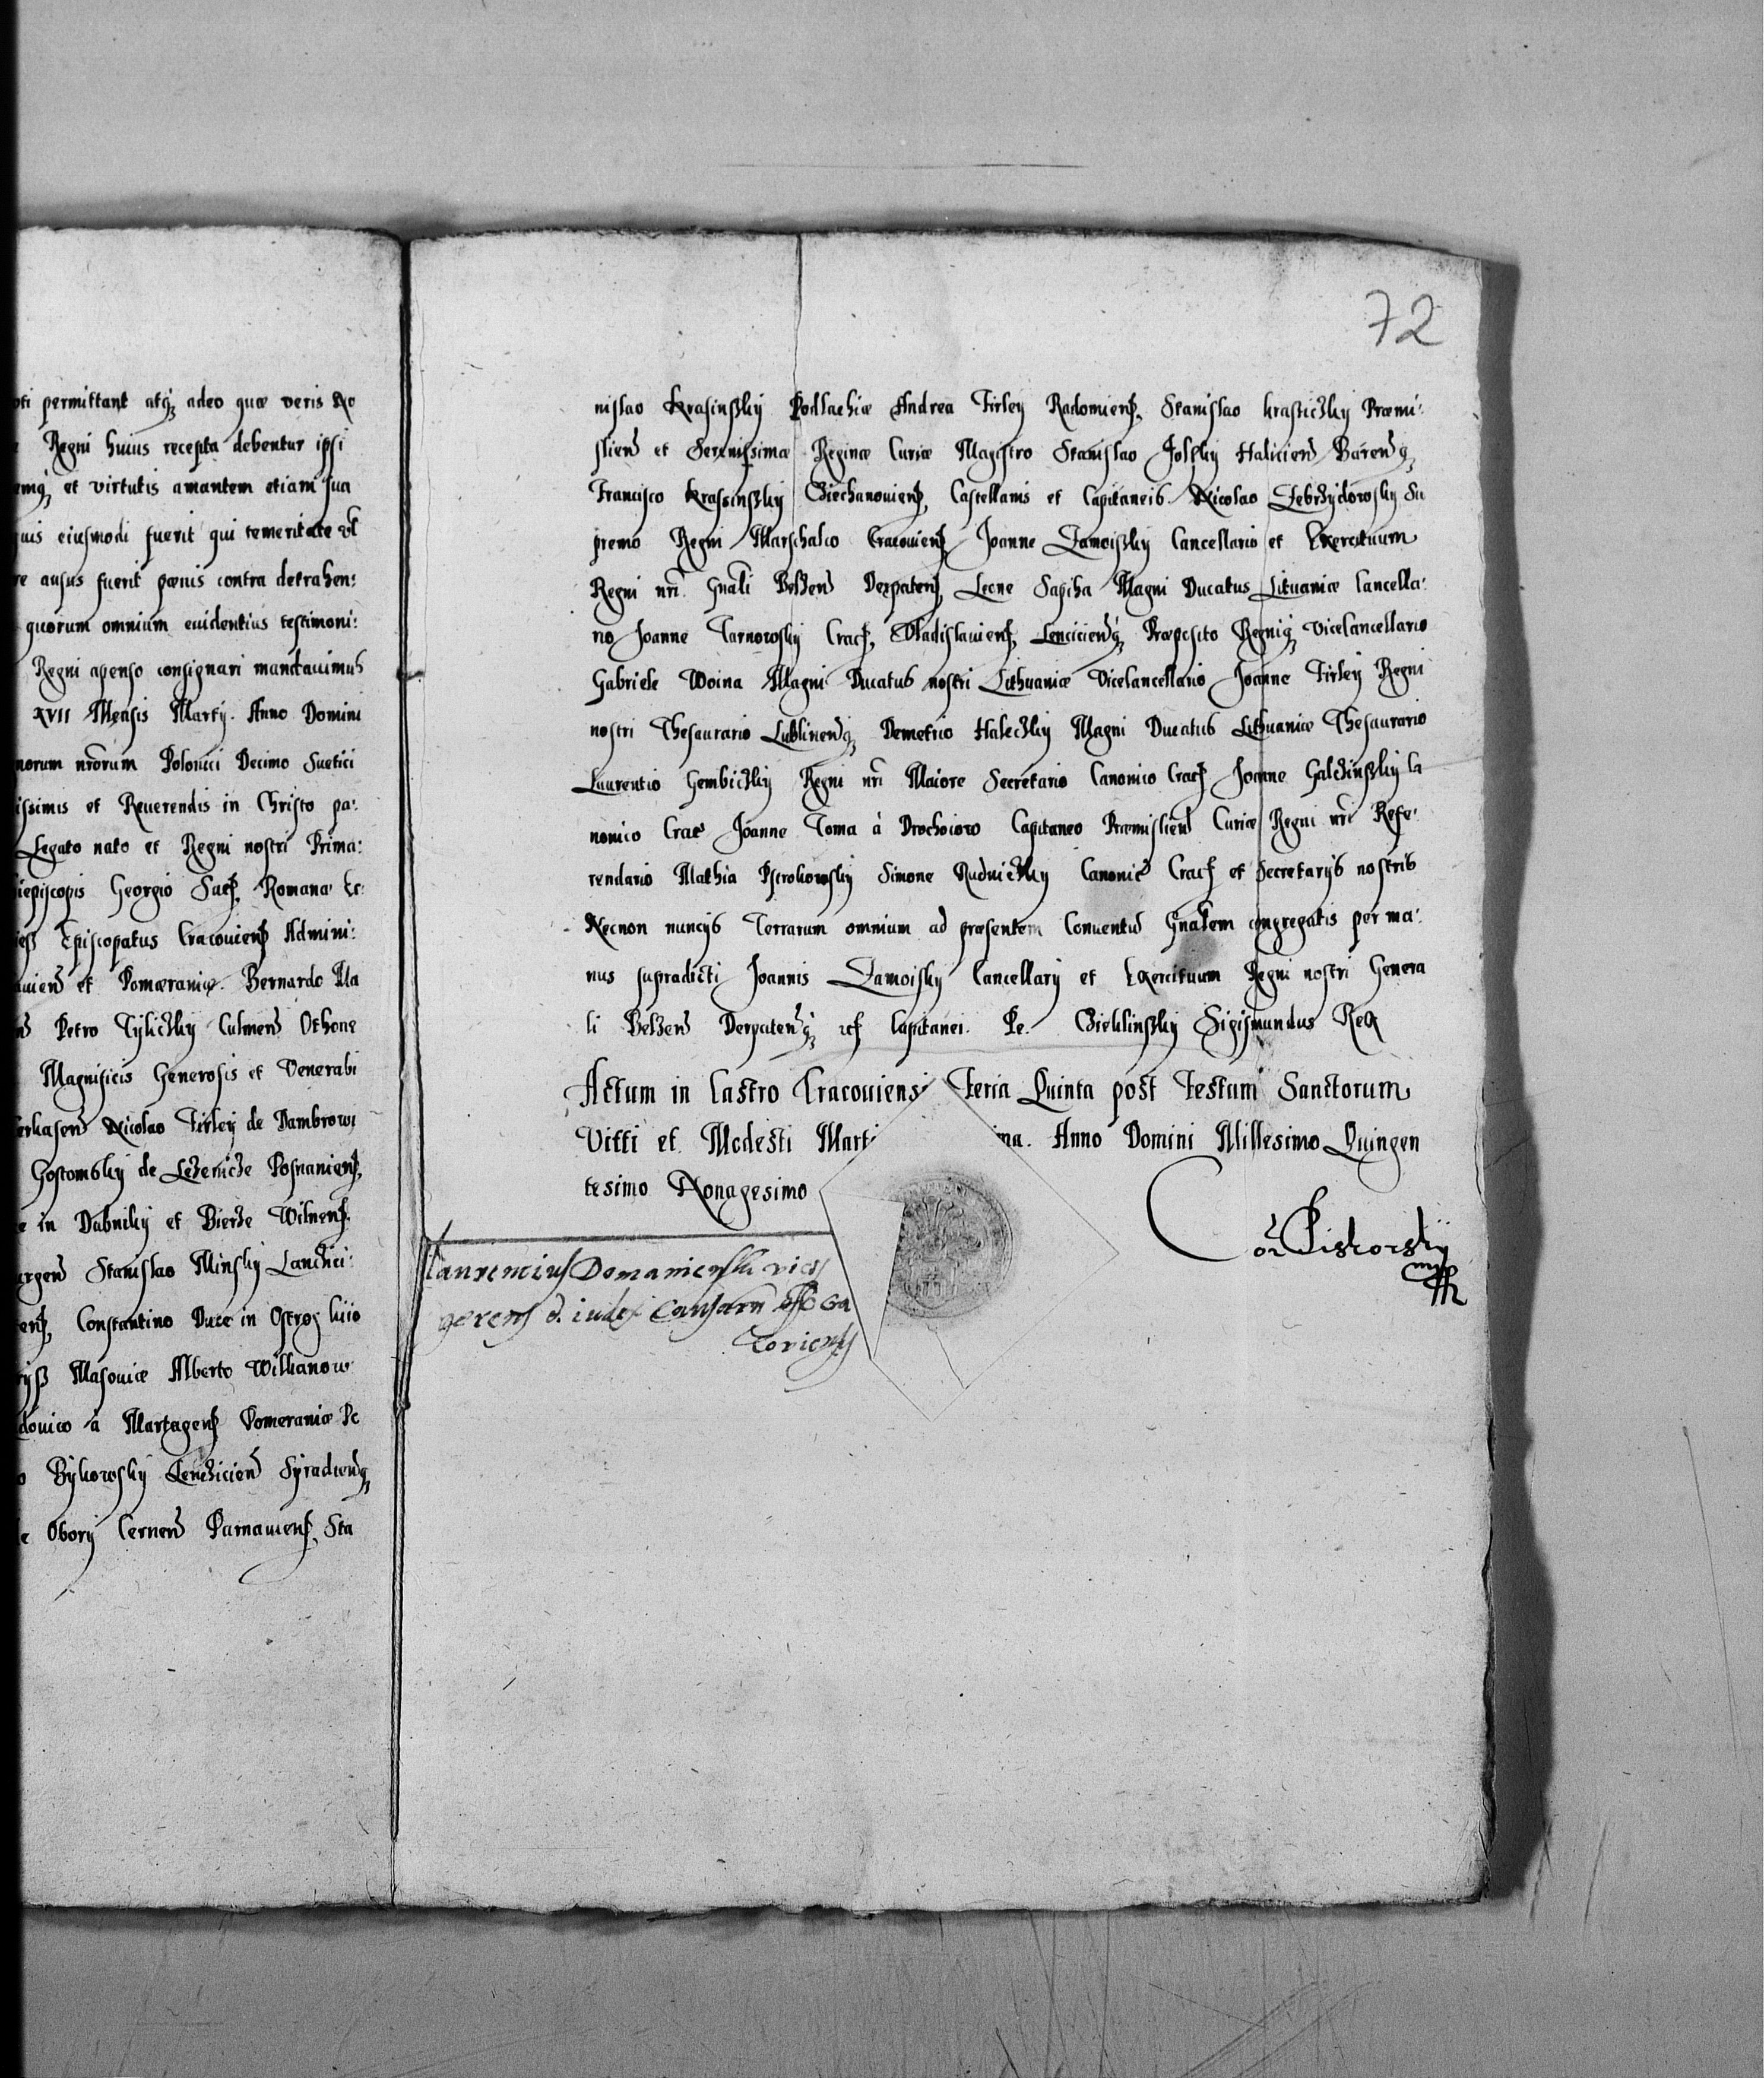 permittant atq; adeo quæ veris No
Regni huius recepta debentur ipsi
et virtutis amantem etiam sua
eiusmodi fuerit qui temeritate vl
ausus fuerit pœnis contra detrahen:
quorum omnium euidentius testimoni:
Regni apenso consignari mandauimus
XVII Mensis Martÿ. Anno Domini
nrorum Polonici Decimo Suetici
et Reuerendis in Christo pa:
Legato nato et Regni nostri Prima:
Georgio Romanæ Ec:
Episcopatus Cracouien Admini:
et Pomæraniæ. Bernardo Ma
Petro Tÿliczkÿ Culmen Othone
Magnificis Generosis et Venerabi
Nicolao Firleÿ de Dambrowi
Gostomskÿ de Lezenicze Posnanien
in Dubnikÿ et Bierze Wilnen
Stanislao Minskÿ Lanchici:
Constantino Duce in Ostrog kiio
Masouiæ Alberto Wilkanow
à Martagen Pomeraniæ Pc
Bÿkowskÿ Lenchicien Sÿradien q;
Oborÿ Cernen Parnauien Sta
72
nislao Krasinskÿ Podlachiæ Andrea Firleÿ Radomien Stanislao krasiczkÿ Præmi:
slien et Serenissimæ Reginæ Curiæ Magistro Stanislao Golskÿ Halicien Baren q;
Francisco Krassinskÿ Cziechanouien Castellanis et Capitaneis Nicolao Zebrzÿdowskÿ Su
premo Regni Marschalco Cracouien Joanne Zamoiskÿ Cancellario et Exercituum
Regni nri Gnali Belzen Derpaten Leone Sapiha Magni Ducatus Lituaniæ Cancella:
rio Joanne Tarnowskÿ Crac Vladislauien Lencicien q; Præposito Regniq; Vicelancellario
Gabriele Woina Magni Ducatus nostri Lithuaniæ Vicelancellario Joanne Firleÿ Regni
nostri Thesaurario Lublinen q; Demetrio Haleczkÿ Magni Ducatus Lithuaniæ Thesaurario
Laurentio Gembiczkÿ Regni nri Maiore Secretario Canonico Crac Joanne Galczinskÿ Ca
nonico Crac Joanne Toma à Drohoiow Capitaneo Præmislien Curiæ Regni nri Refe:
rendario Mathia Pstrokonskÿ Simone Rudniczkÿ Canonic Crac et Secretarÿs nostris
Necnon nuncÿs Terrarum omnium ad præsentem Conuentu Gnalem congregatis per ma:
nus supradicti Joannis Zamoiskÿ Cancellarÿ et Exercituum Regni nostri Genera
li Belzen Derpaten q; Capitanei. Pe. Cziklinskÿ Sigismundus Rex
Actum in Castro Cracouiensi Feria Quinta post Festum Sanctorum
Vitti et Modesti Marti ma. Anno Domini Millesimo Quingen
tesimo Nonagesimo
Laurencius
gerens iudex Causarum
Piskorskÿ
mpp